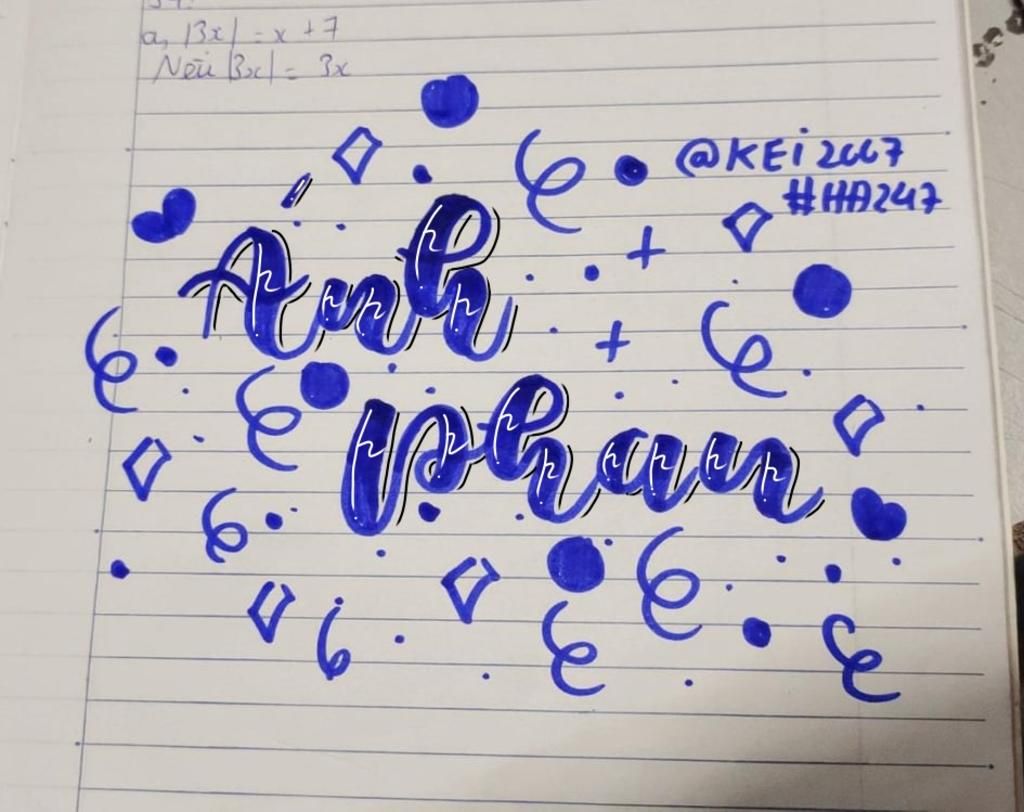 a, |3x| = x + 7
Nếu |3x| = 3x
@KEi2007
#HA247
Ánh
phan